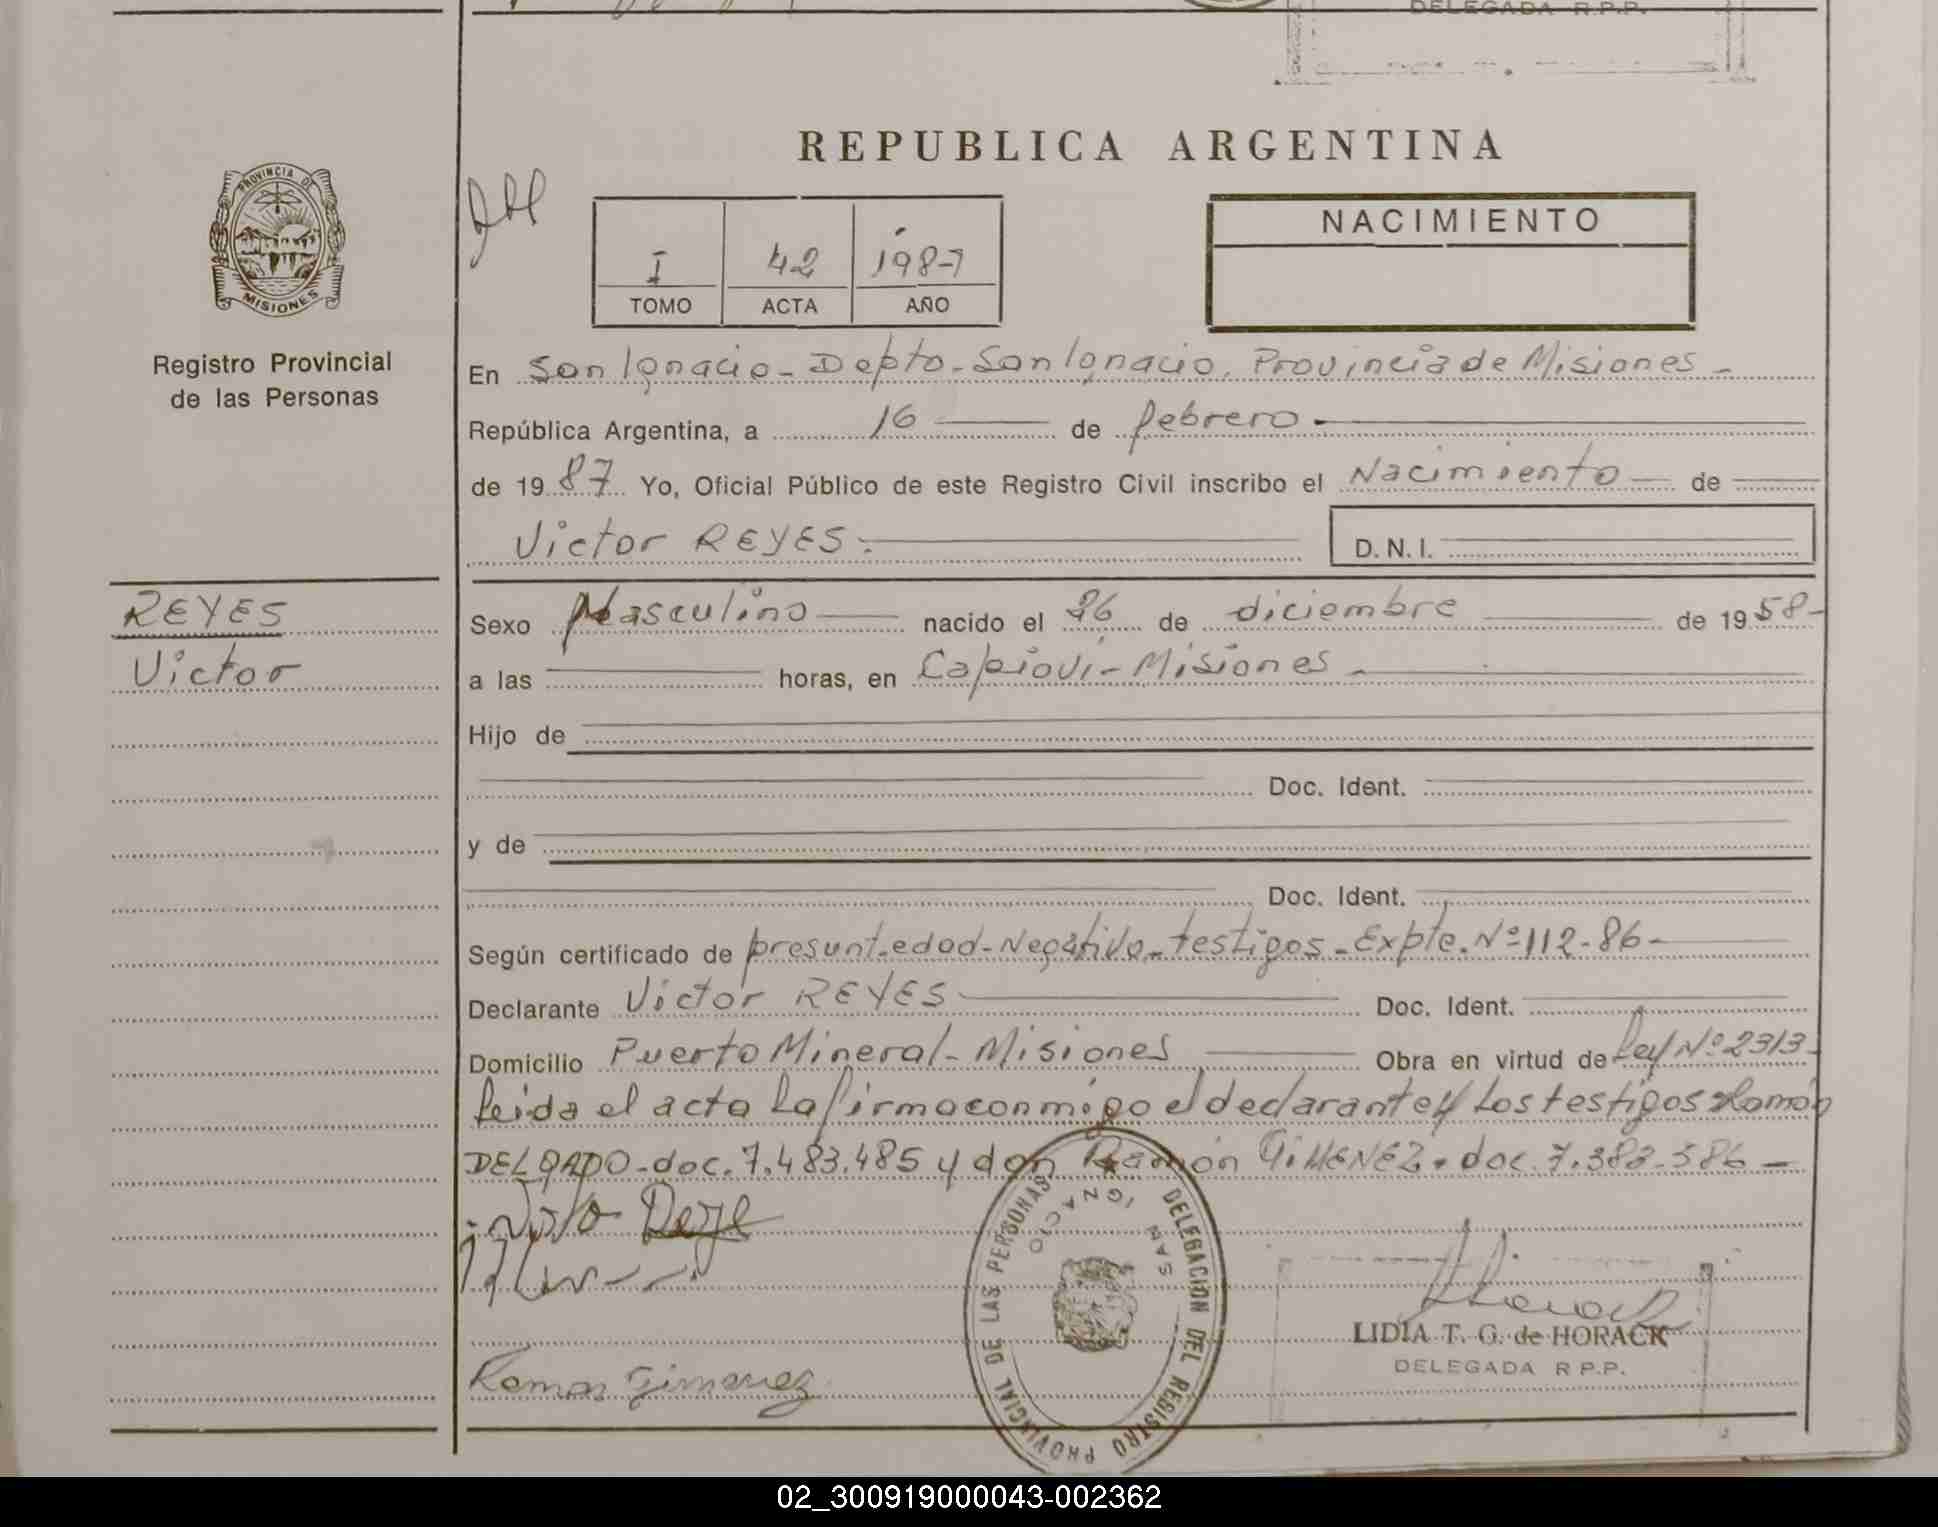 DELEGADA R.P.P.
REPUBLICA ARGENTINA
PROVINCIA DE
MISIONES
Registro Provincial
de las Personas
I 42 1987
TOMO ACTA AÑO
NACIMIENTO
En San Ignacio - Depto - San Ignacio. Provincia de Misiones -
República Argentina, a 16 de febrero -
de 1987 Yo, Oficial Público de este Registro Civil inscribo el Nacimiento de
Victor REYES. D.N.I.
REYES
Victor
Sexo Masculino nacido el 26 de diciembre de 1958-
a las horas, en Capioví - Misiones -
Hijo de
Doc. Ident.
y de
Doc. Ident.
Según certificado de presunt. edad - Negativo - testigos - Expte. Nº 112-86-
Declarante Victor REYES Doc. Ident.
Domicilio Puerto Mineral - Misiones Obra en virtud de Ley Nº 2313-
leida el acta la firma conmigo el declarante y los testigos Ramón
DELGADO - doc. 7.483.485 y don Ramón GIMENEZ. doc. 7.382.586 -
Ramon Gimenez
DELEGACION DEL REGISTRO PROVINCIAL DE LAS PERSONAS
SAN IGNACIO
LIDIA T. G. de HORACK
DELEGADA R P.P.
02_300919000043-002362